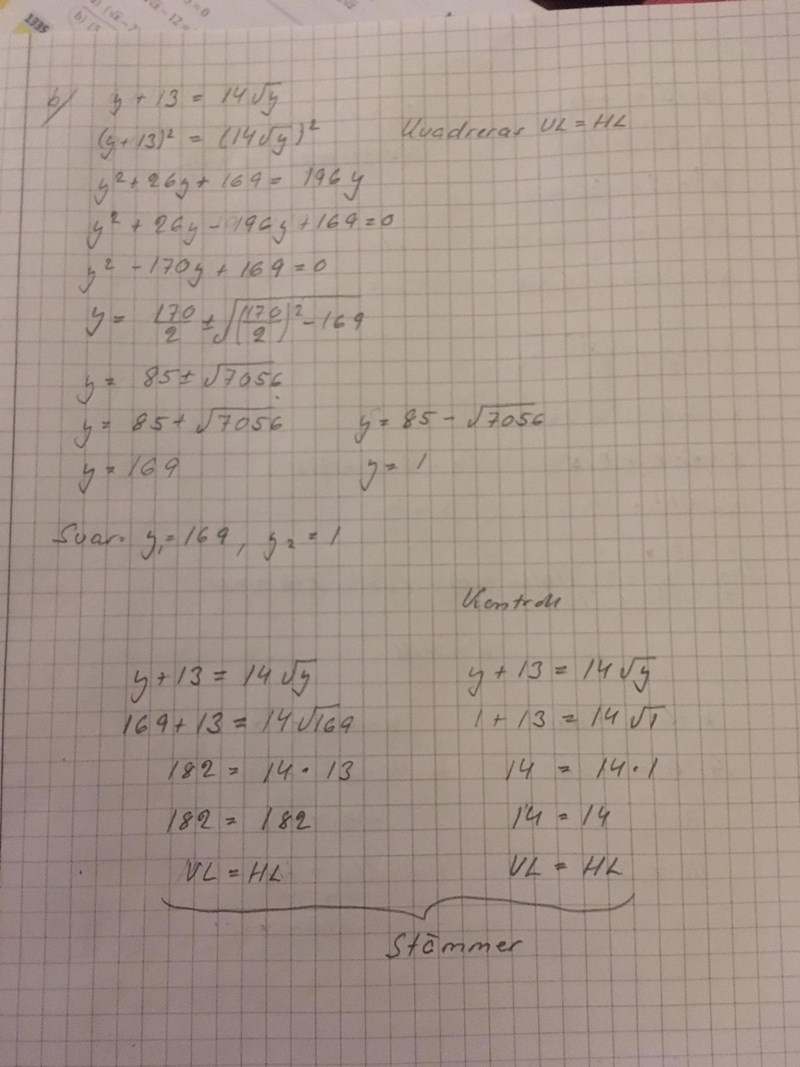 1335
b) y + 13 = 14√y
(y+13)² = (14√y)² Kvadreras VL = HL
y² + 26y + 169 = 196y
y² + 26y - 196y + 169 = 0
y² - 170y + 169 = 0
y = 170/2 ± √((170/2)² - 169)
y = 85 ± √7056
y = 85 + √7056 y = 85 - √7056
y = 169 y = 1
Svar. y₁ = 169, y₂ = 1
Kontroll
y + 13 = 14√y y + 13 = 14√y
169 + 13 = 14√169 1 + 13 = 14√1
182 = 14 · 13 14 = 14 · 1
182 = 182 14 = 14
VL = HL VL = HL
Stämmer